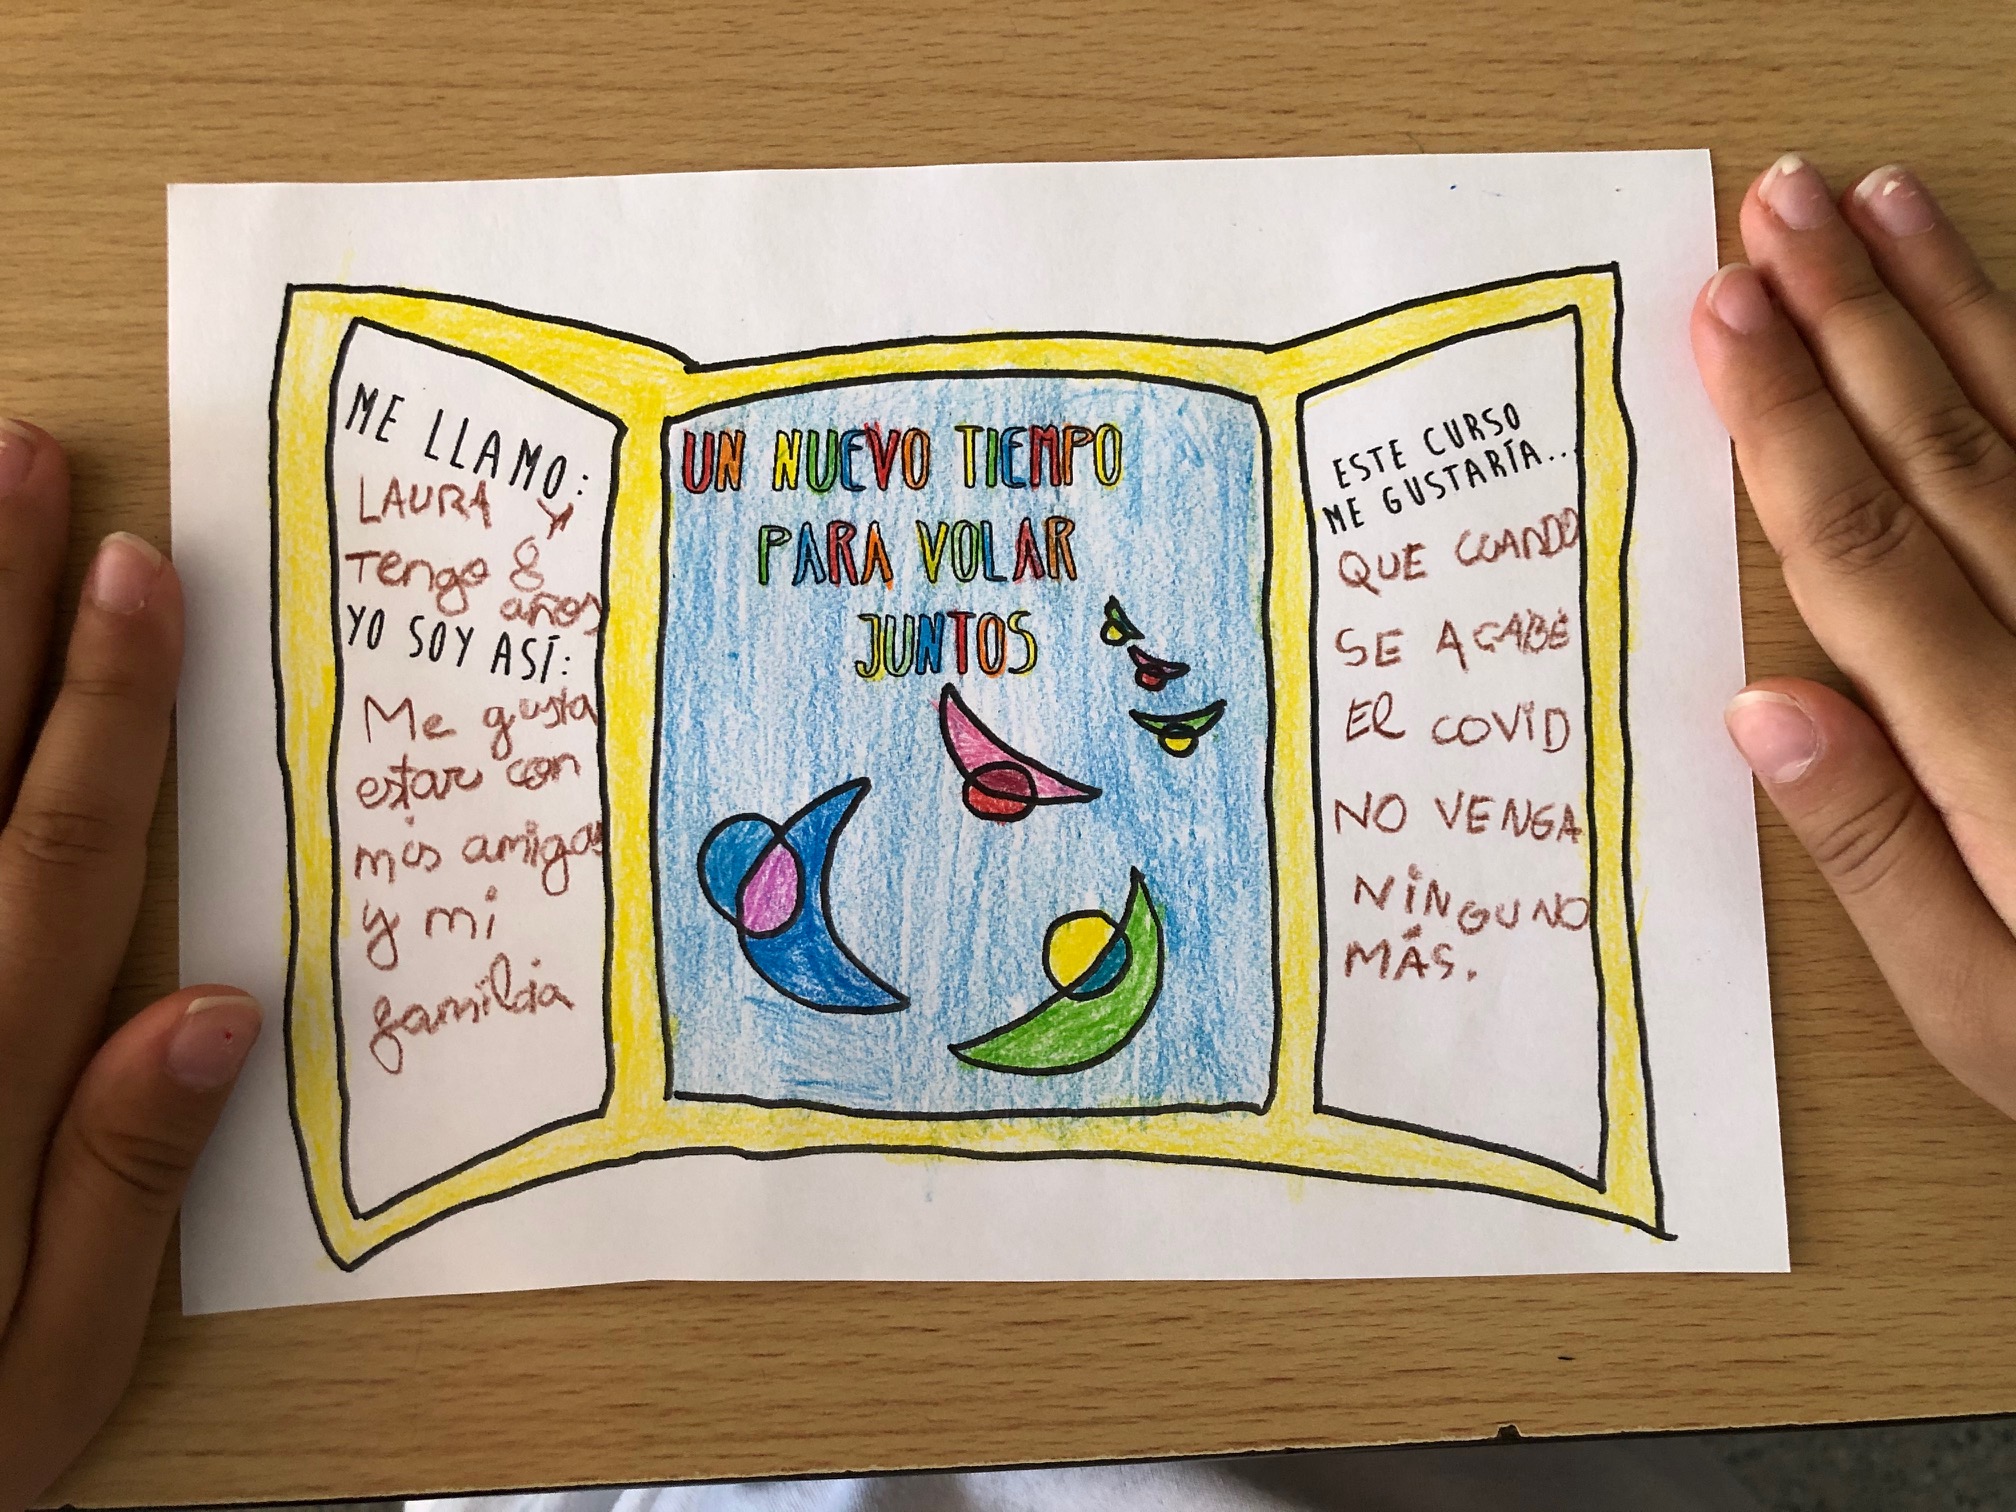 ME LLAMO:
LAURA Y
Tengo 8
años
YO SOY ASÍ:
Me gusta
estar con
mis amigas
y mi
familia
UN NUEVO TIEMPO
PARA VOLAR
JUNTOS
ESTE CURSO
ME GUSTARÍA...
QUE CUANDO
SE ACABE
El COVID
NO VENGA
NINGUNO
MÁS.